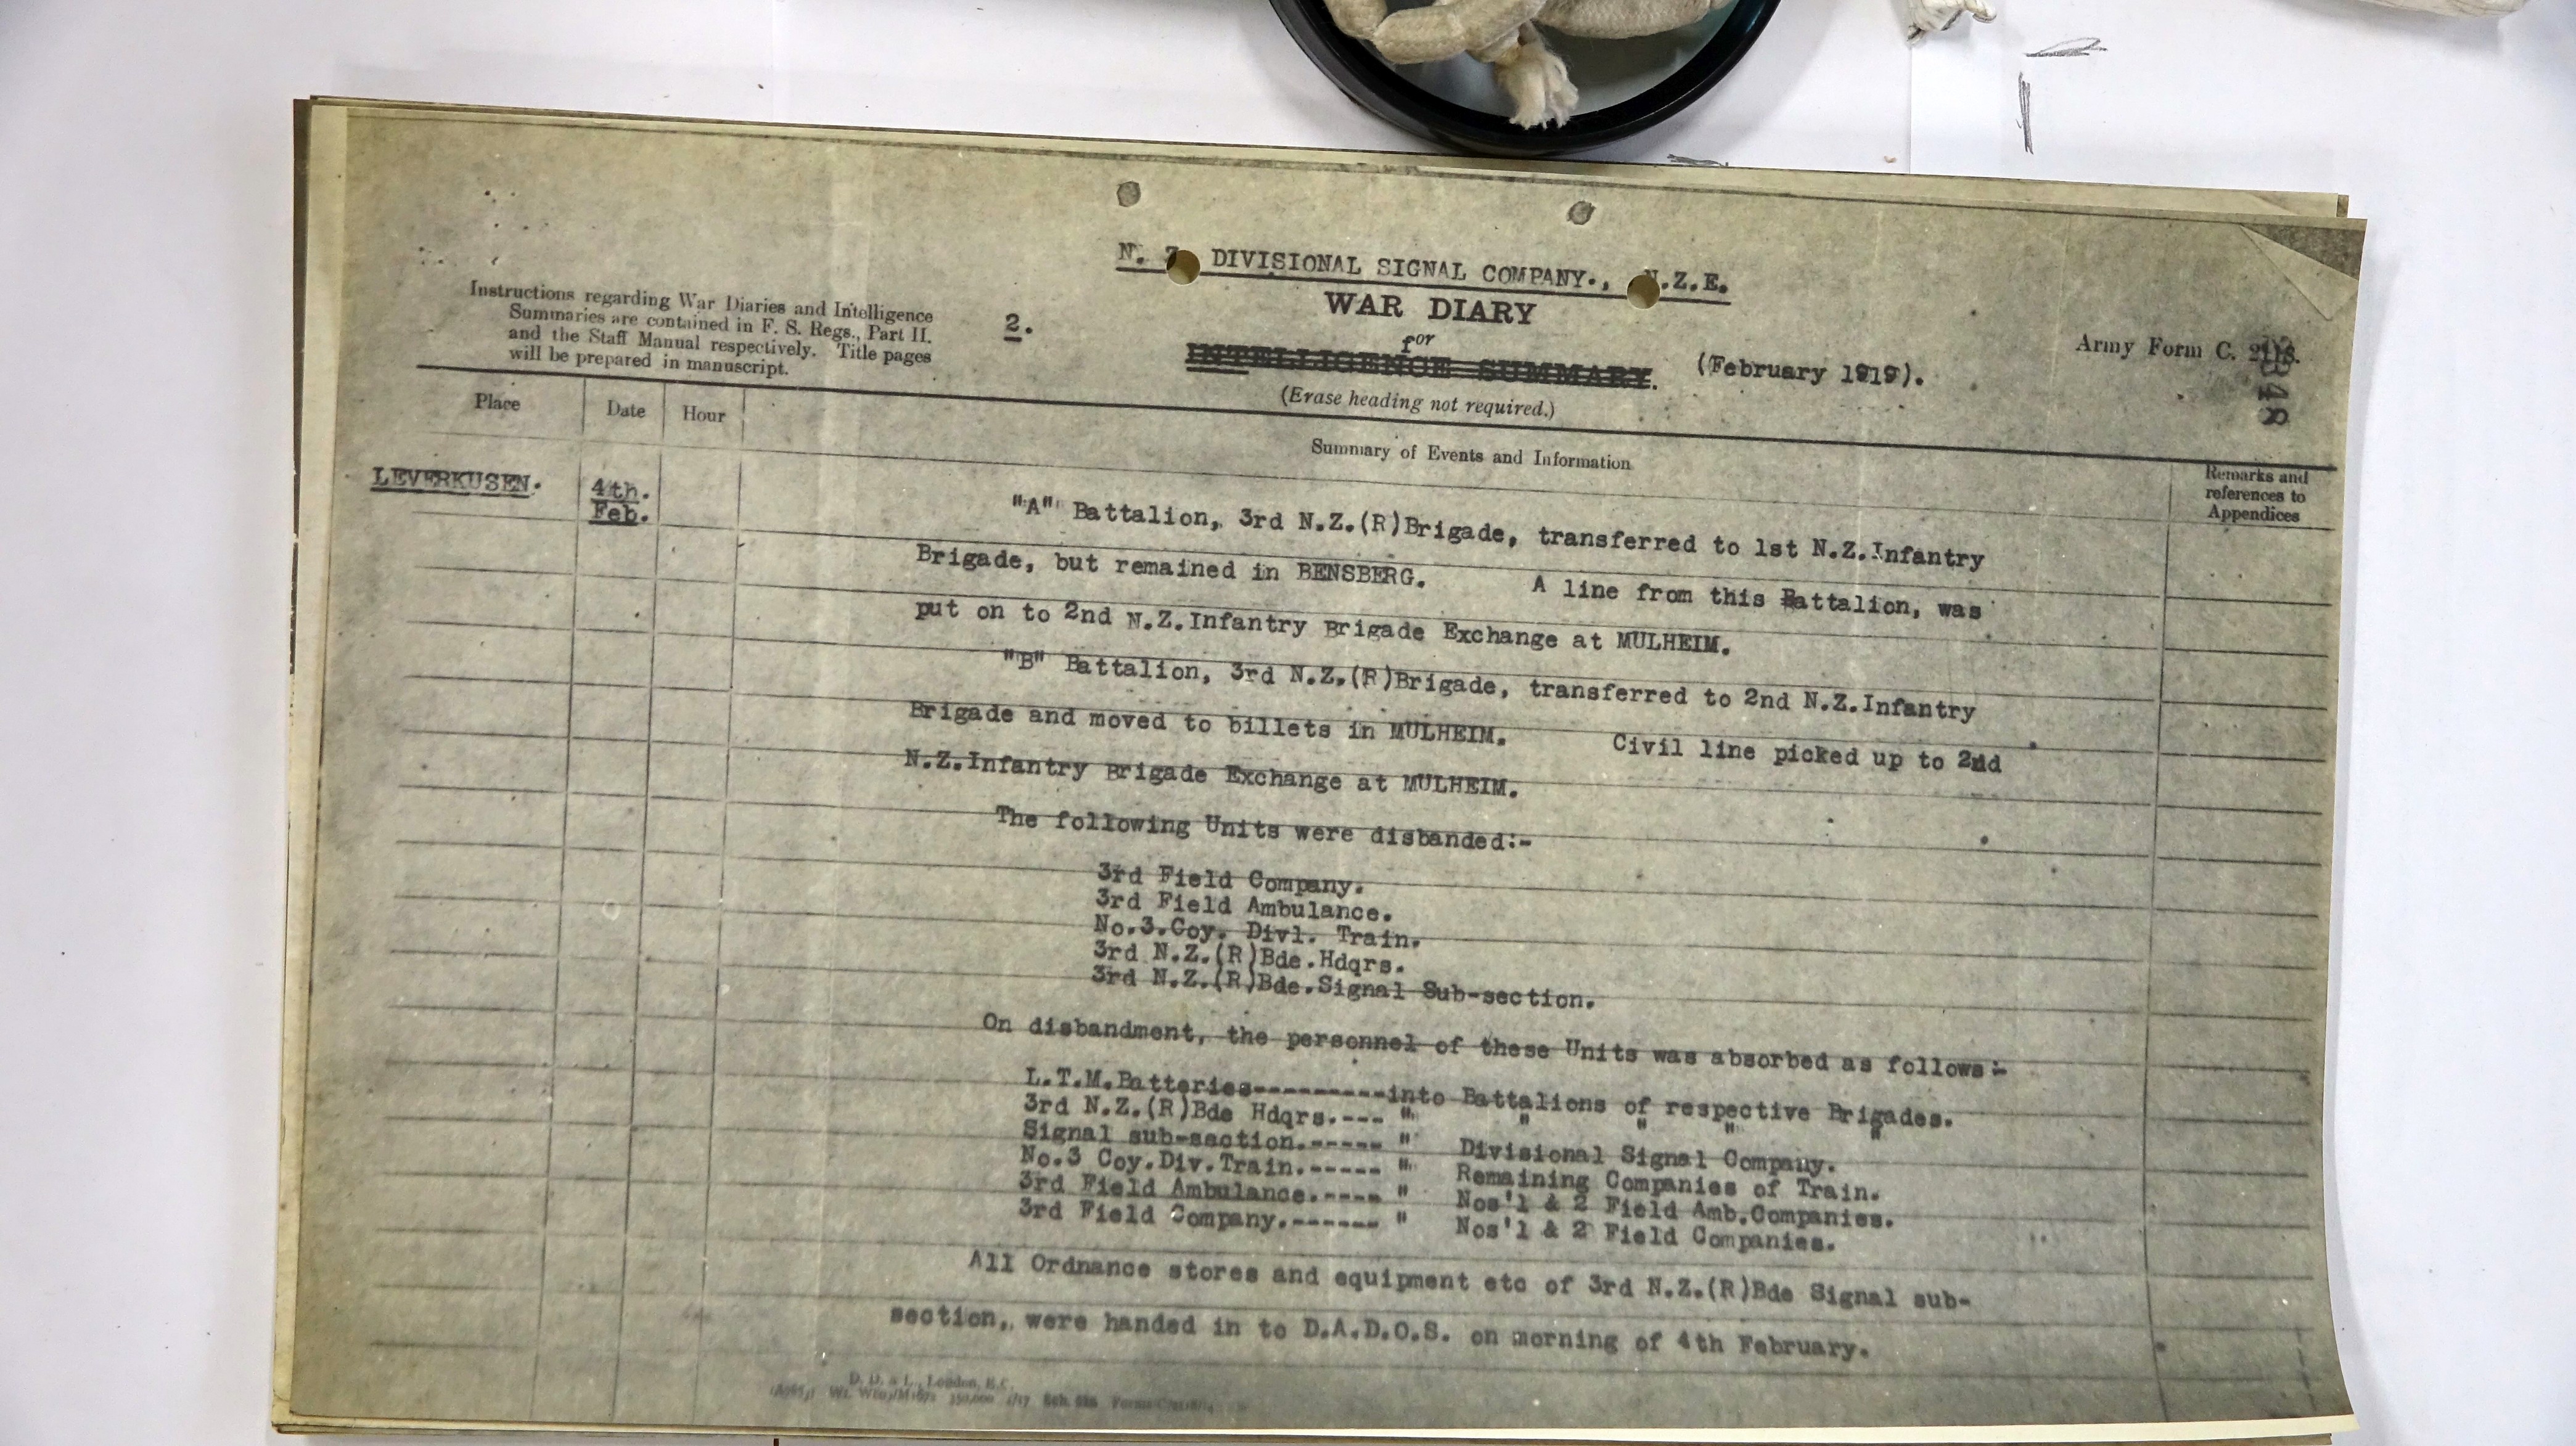 N. Z. DIVISIONAL SIGNAL COMPANY., N.Z.E.
Instructions regarding War Diaries and Intelligence
Summaries are contained in F. S. Regs., Part II.
and the Staff Manual respectively. Title pages
will be prepared in manuscript.
2.
WAR DIARY
for
INTELLIGENCE SUMMARY.
(February 1919).
(Erase heading not required.)
Army Form C. 2118.
348
Place
Date
Hour
Summary of Events and Information
Remarks and
references to
Appendices
LEVERKUSEN.
4th.
Feb.
"A" Battalion, 3rd N.Z.(R)Brigade, transferred to 1st N.Z.Infantry
Brigade, but remained in BENSBERG. A line from this Battalion, was
put on to 2nd N.Z.Infantry Brigade Exchange at MULHEIM.
"B" Battalion, 3rd N.Z.(R)Brigade, transferred to 2nd N.Z.Infantry
Brigade and moved to billets in MULHEIM. Civil line picked up to 2nd
N.Z.Infantry Brigade Exchange at MULHEIM.
The following Units were disbanded:-
3rd Field Company.
3rd Field Ambulance.
No.3.Coy. Divl. Train.
3rd N.Z.(R)Bde.Hdqrs.
3rd N.Z.(R)Bde.Signal Sub-section.
On disbandment, the personnel of these Units was absorbed as follows:-
L.T.M.Batteries---------into Battalions of respective Brigades.
3rd N.Z.(R)Bde Hdqrs.--- " " " " "
Signal sub-section.----- " Divisional Signal Company.
No.3 Coy.Div.Train.----- " Remaining Companies of Train.
3rd Field Ambulance.---- " Nos'1 & 2 Field Amb.Companies.
3rd Field Company.------ " Nos'1 & 2 Field Companies.
All Ordnance stores and equipment etc of 3rd N.Z.(R)Bde Signal sub-
section, were handed in to D.A.D.O.S. on morning of 4th February.
D. D. & L., London, E.C.